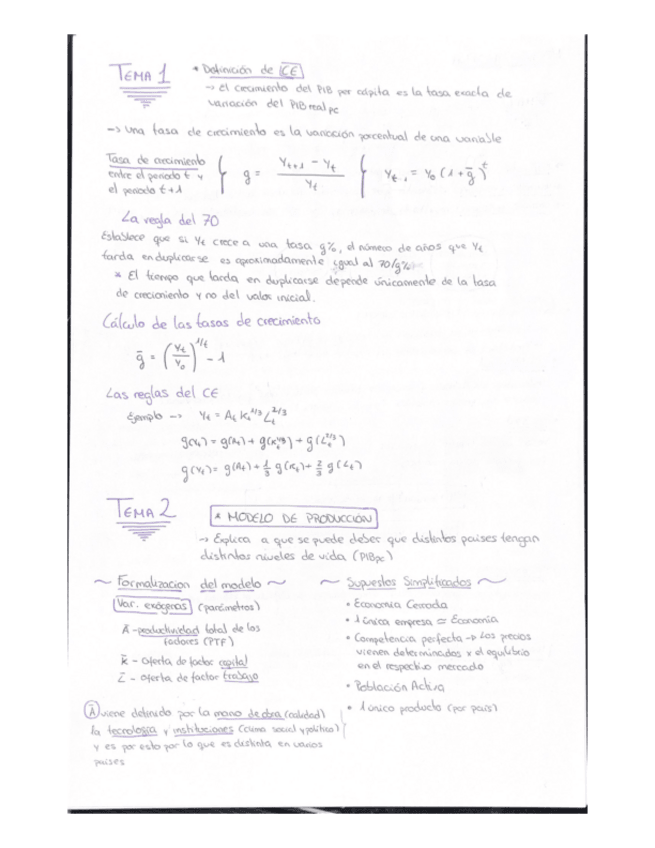 TEMA 1
* Definición de CE
→ El crecimiento del PIB per cápita es la tasa exacta de
variación del PIB real pc
→ Una tasa de crecimiento es la variación porcentual de una variable
Tasa de crecimiento
entre el periodo t y
el periodo t+1
g = (Yt+1 − Yt) / Yt
Yt = Y0 (1 + g̅)^t
La regla del 70
Establece que si Yt crece a una tasa g%, el número de años que Yt
tarda en duplicarse es aproximadamente igual al 70/g%
* El tiempo que tarda en duplicarse depende únicamente de la tasa
de crecimiento y no del valor inicial.
Cálculo de las tasas de crecimiento
g̅ = (Yt / Y0)^1/t − 1
Las reglas del CE
Ejemplo → Yt = At Kt^1/3 Lt^2/3
g(Yt) = g(At) + g(Kt^1/3) + g(Lt^2/3)
g(Yt) = g(At) + 1/3 g(Kt) + 2/3 g(Lt)
TEMA 2
* MODELO DE PRODUCCIÓN
→ Explica a que se puede deber que distintos países tengan
distintos niveles de vida (PIBpc)
~ Formalización del modelo ~
Var. exógenas (parámetros)
A̅ - productividad total de los
factores (PTF)
K̅ - oferta de factor capital
L̅ - oferta de factor trabajo
A̅ viene definido por la mano de obra (calidad)
la tecnología y instituciones (clima social y político)
y es por esto por lo que es distinta en varios
países
~ Supuestos Simplificados ~
• Economía Cerrada
• 1 única empresa = Economía
• Competencia perfecta → Los precios
vienen determinados x el equilibrio
en el respectivo mercado
• Población Activa
• 1 único producto (por país)